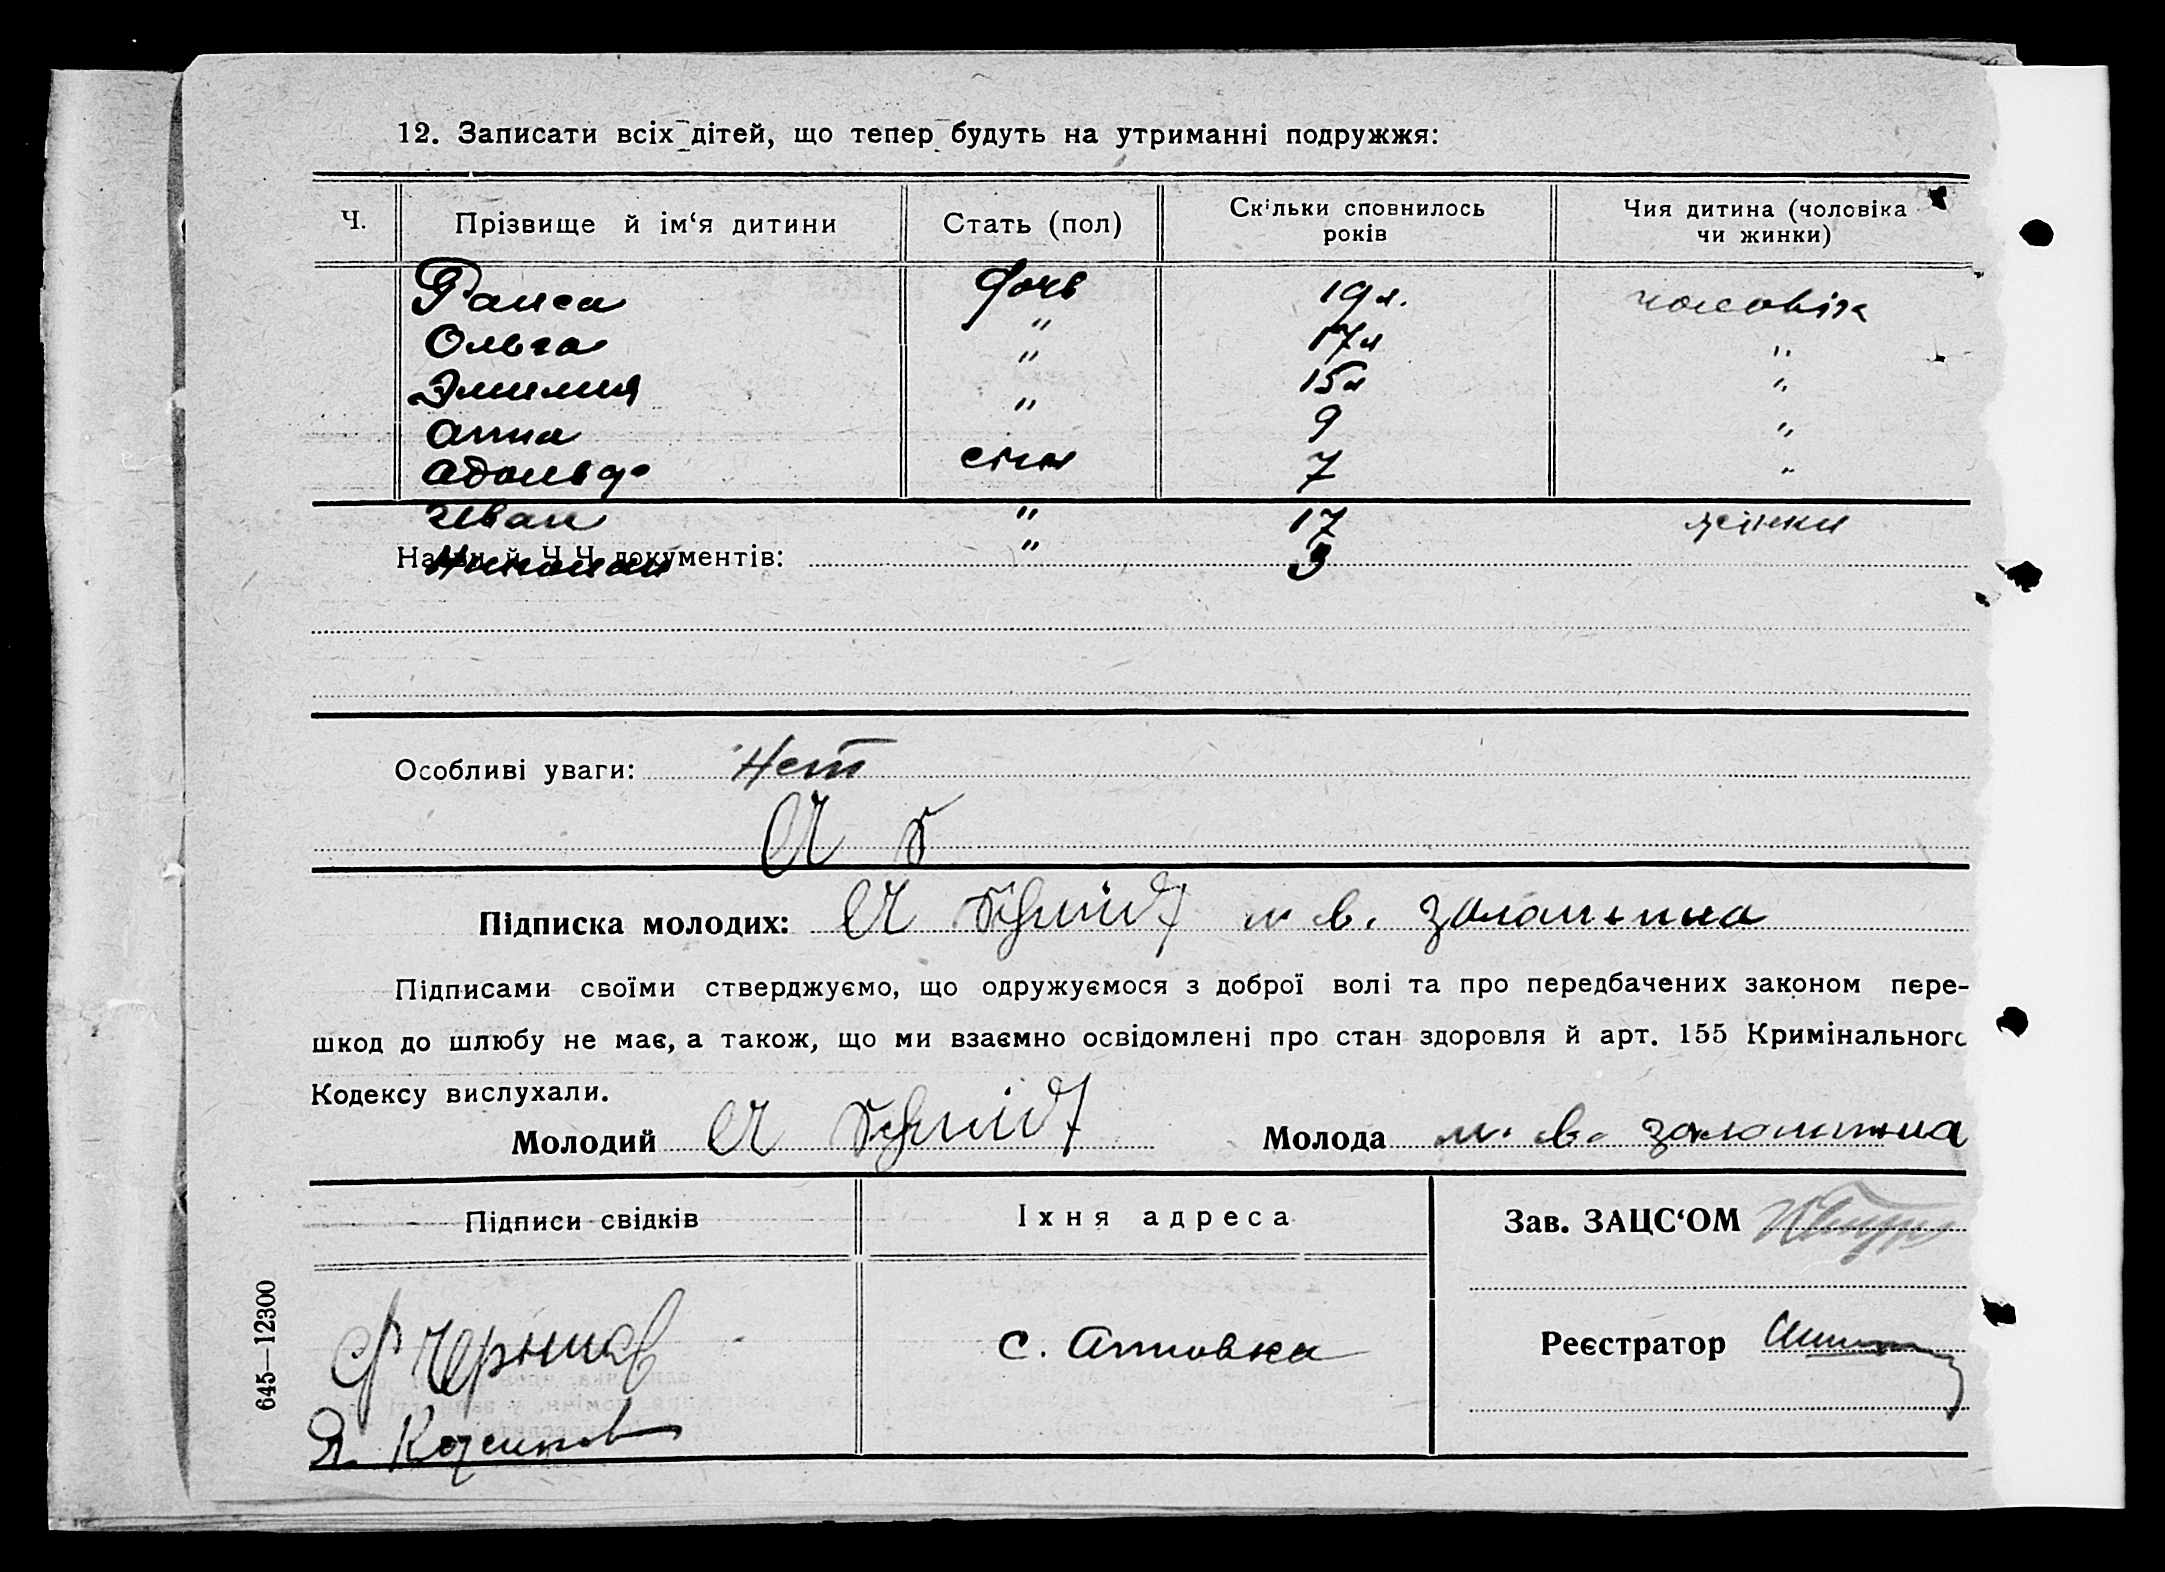 12. Записати всіх дітей, що тепер будуть на утриманні подружжя:
Ч. Прізвище й ім‘я дитини Стать (пол) Скільки сповнилось років Чия дитина (чоловіка чи жинки)
Раиса дочь 19 л. чоловік
Ольга " 17 л "
Эмилия " 15 л "
Анна " 9 "
Адольф син 7 "
Иван " 17 жінки
Николай " 3
Назви й Ч.Ч. документів:
Особливі уваги: Нет
Підписка молодих: A Schmidt м. в. золотіна
Підписами своїми стверджуємо, що одружуємося з доброї волі та про передбачених законом пере-
шкод до шлюбу не має, а також, що ми взаємно освідомлені про стан здоровля й арт. 155 Кримінального
Кодексу вислухали.
Молодий A Schmidt Молода м. в.
Підписи свідків Іхня адреса Зав. ЗАЦС‘ОМ
с. Антовка Реєстратор
645—12300